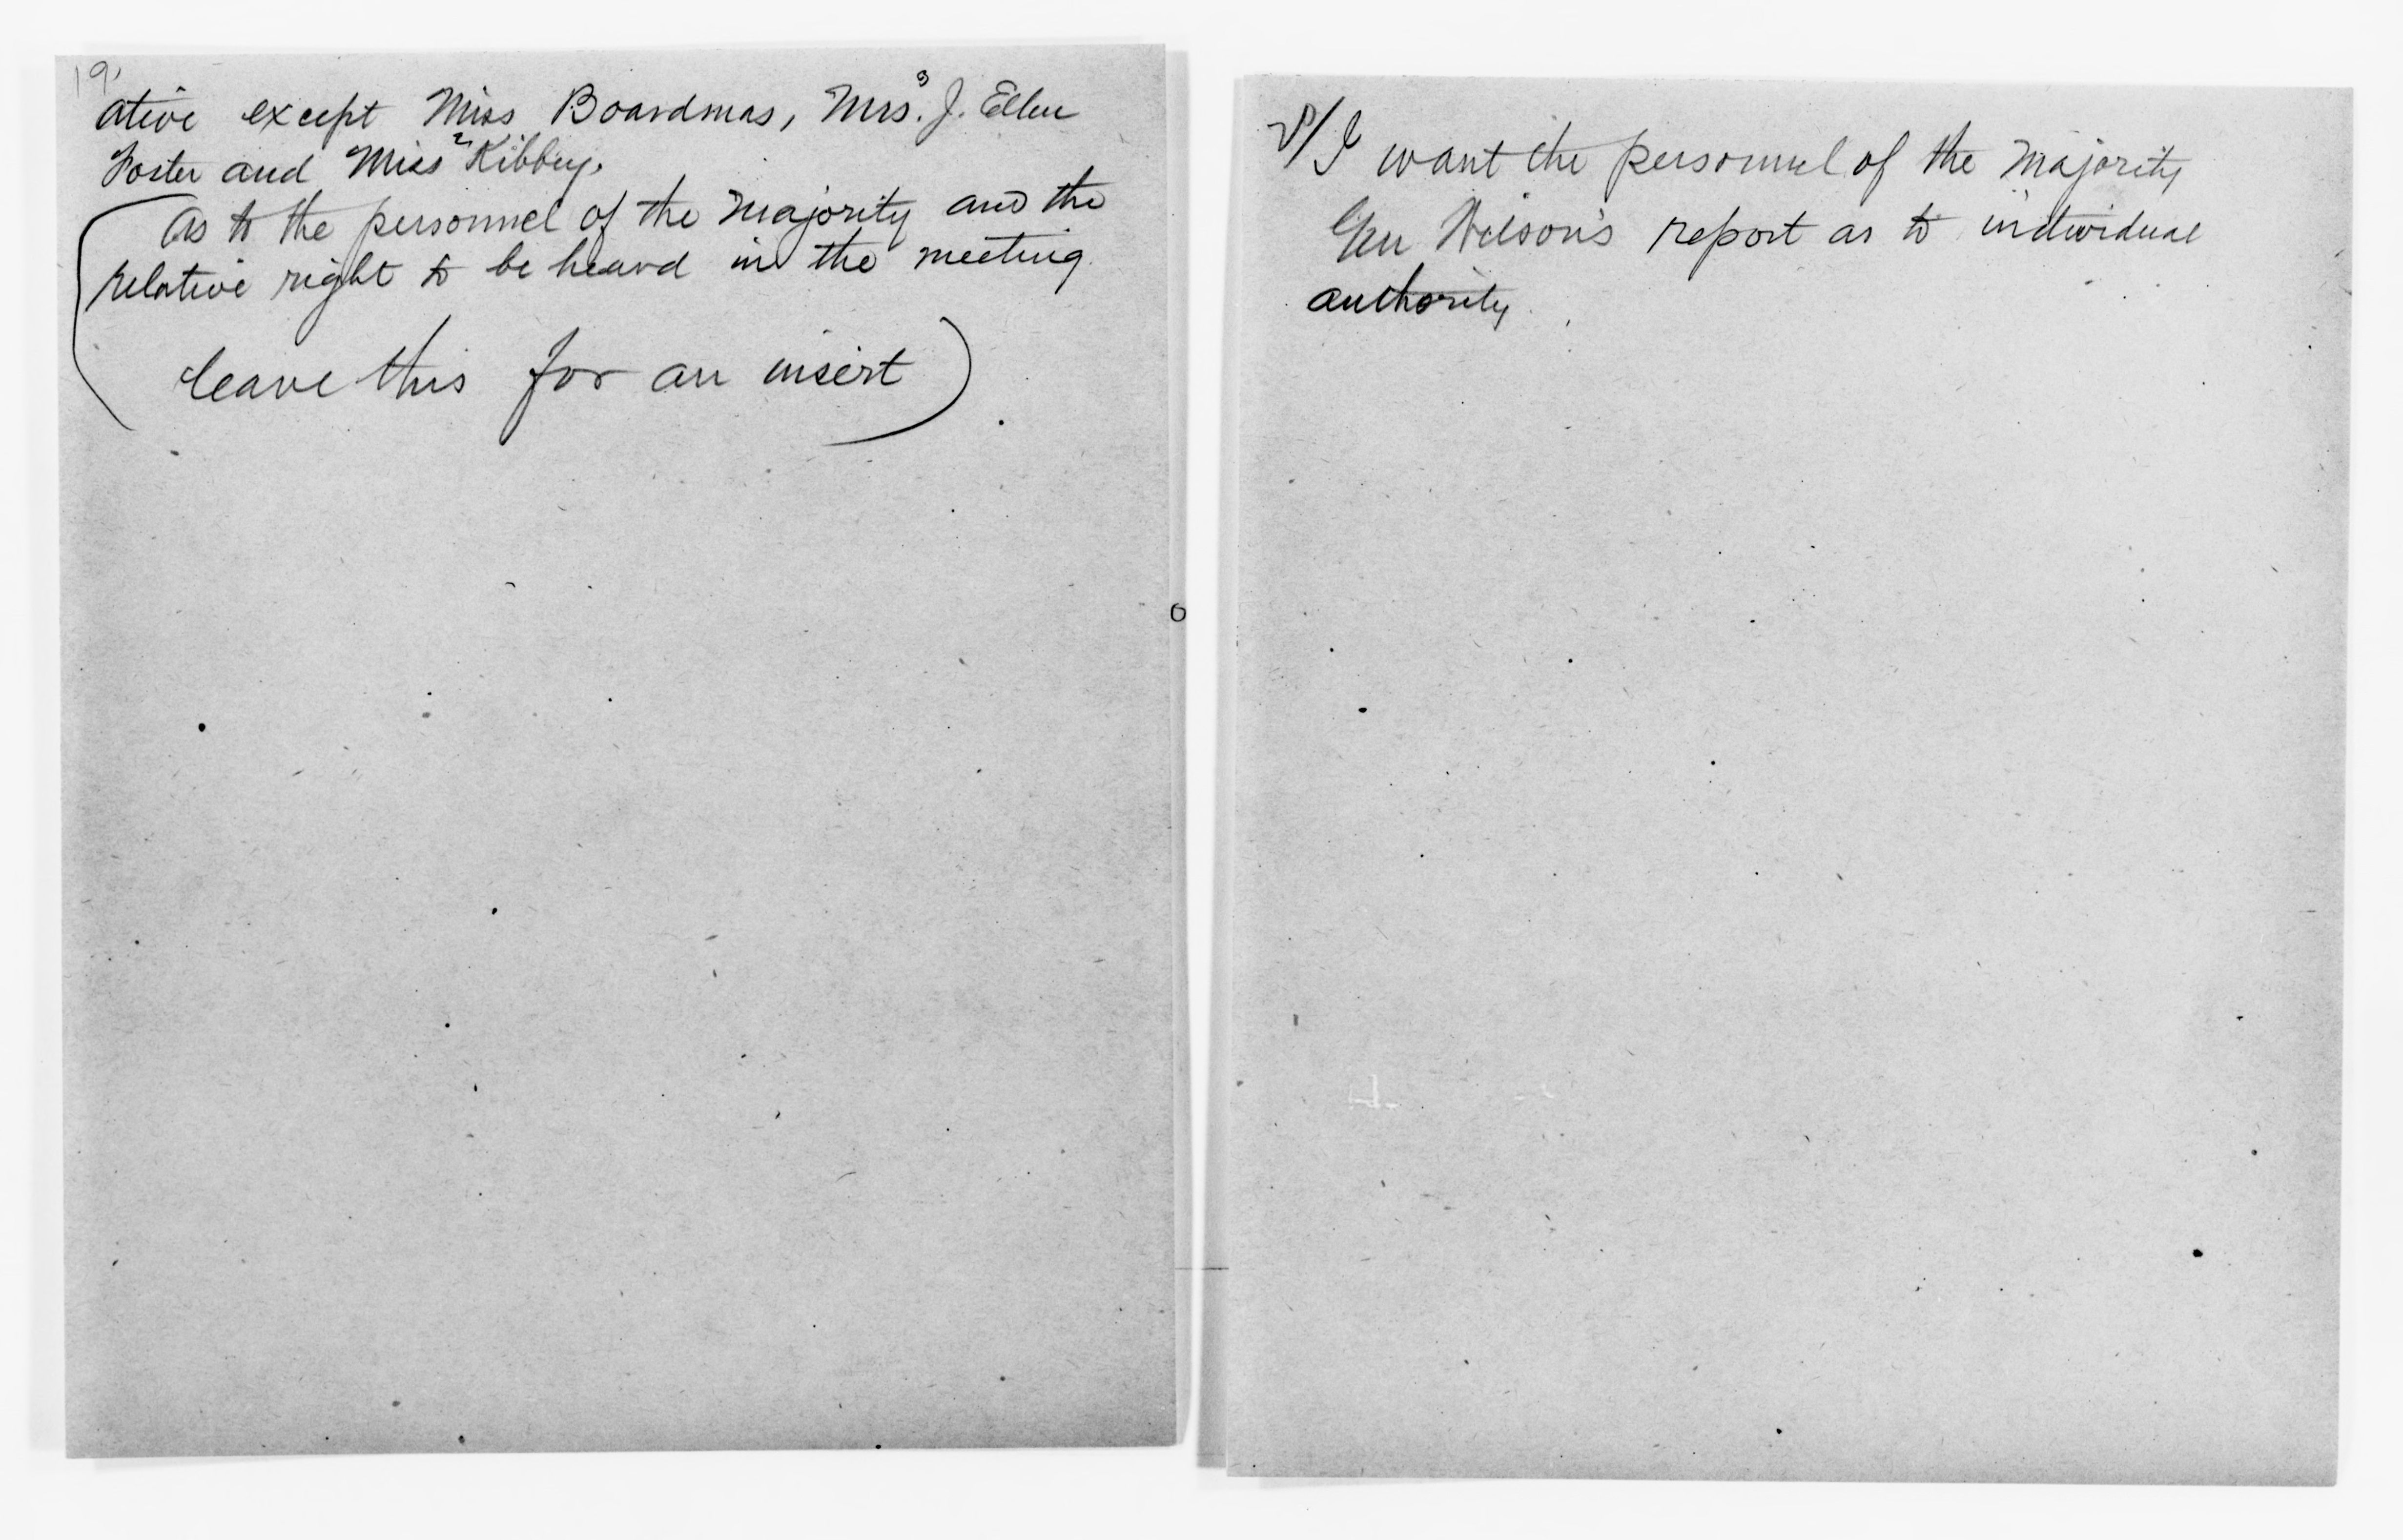 19
ative except Miss Boardman, Mrs.3 J. Ellen
Foster and Miss 2 Kibbey.
(As to the personnel of the majority and the
relative right to be heard in the meeting
leave this for an insert)
I want the personnel of the majority
Gen Wilson's report as to individual
authority.